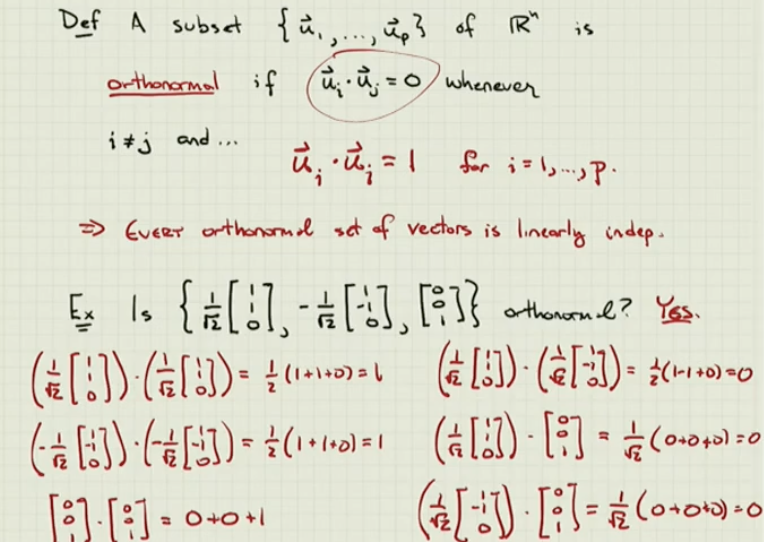 Def A subset {u⃗₁, ..., u⃗ₚ} of ℝⁿ is
orthonormal if u⃗ᵢ · u⃗ⱼ = 0 whenever
i ≠ j and ...
u⃗ᵢ · u⃗ᵢ = 1 for i = 1, ..., p.
⇒ EVERY orthonormal set of vectors is linearly indep.
Ex Is {1/√2 [1 1 0], -1/√2 [-1 1 0], [0 0 1]} orthonormal? YES.
(1/√2 [1 1 0]) · (1/√2 [1 1 0]) = 1/2 (1+1+0) = 1
(1/√2 [1 1 0]) · (1/√2 [-1 1 0]) = 1/2 (1-1+0) = 0
(-1/√2 [-1 1 0]) · (-1/√2 [-1 1 0]) = 1/2 (1+1+0) = 1
(1/√2 [1 1 0]) · [0 0 1] = 1/√2 (0+0+0) = 0
[0 0 1] · [0 0 1] = 0+0+1
(1/√2 [-1 1 0]) · [0 0 1] = 1/√2 (0+0+0) = 0